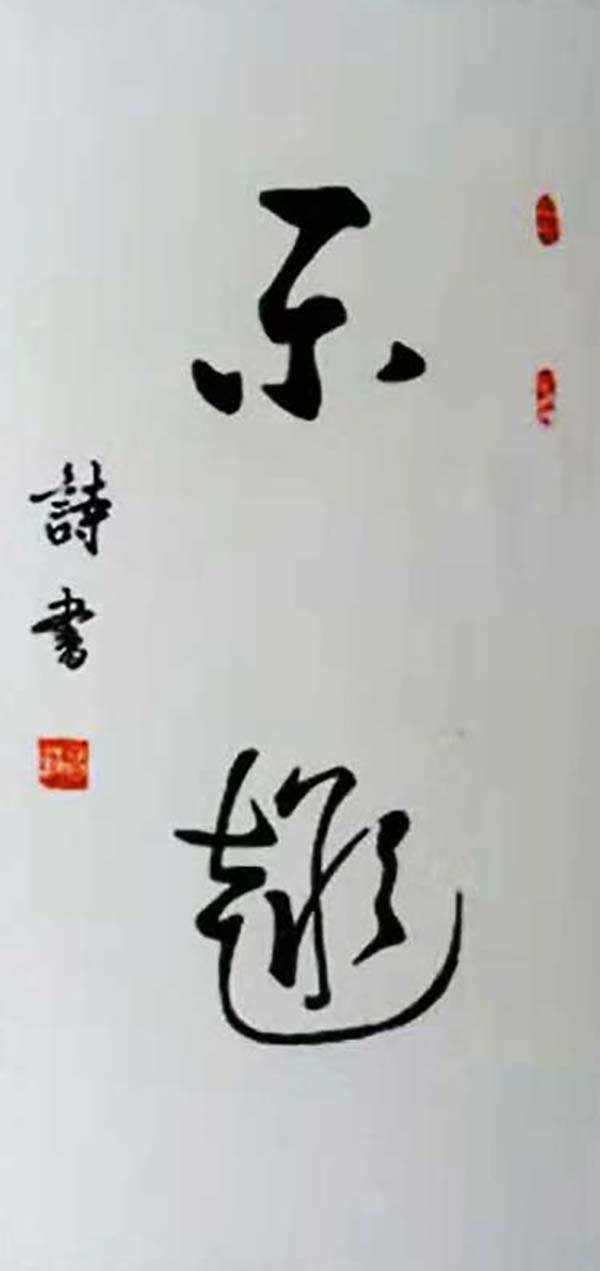 乐趣
詩書